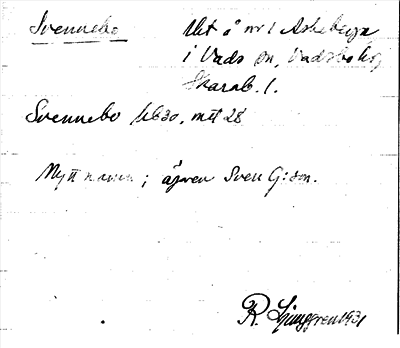 Svennebo Utj å nr 1 Askeberga
i Vads sn, Vadsbo hd
Skarab. l.
Svennebo Ub 30, mtt 28
Nytt namn; ägaren Sven G:son.
R. Ljunggren 1931